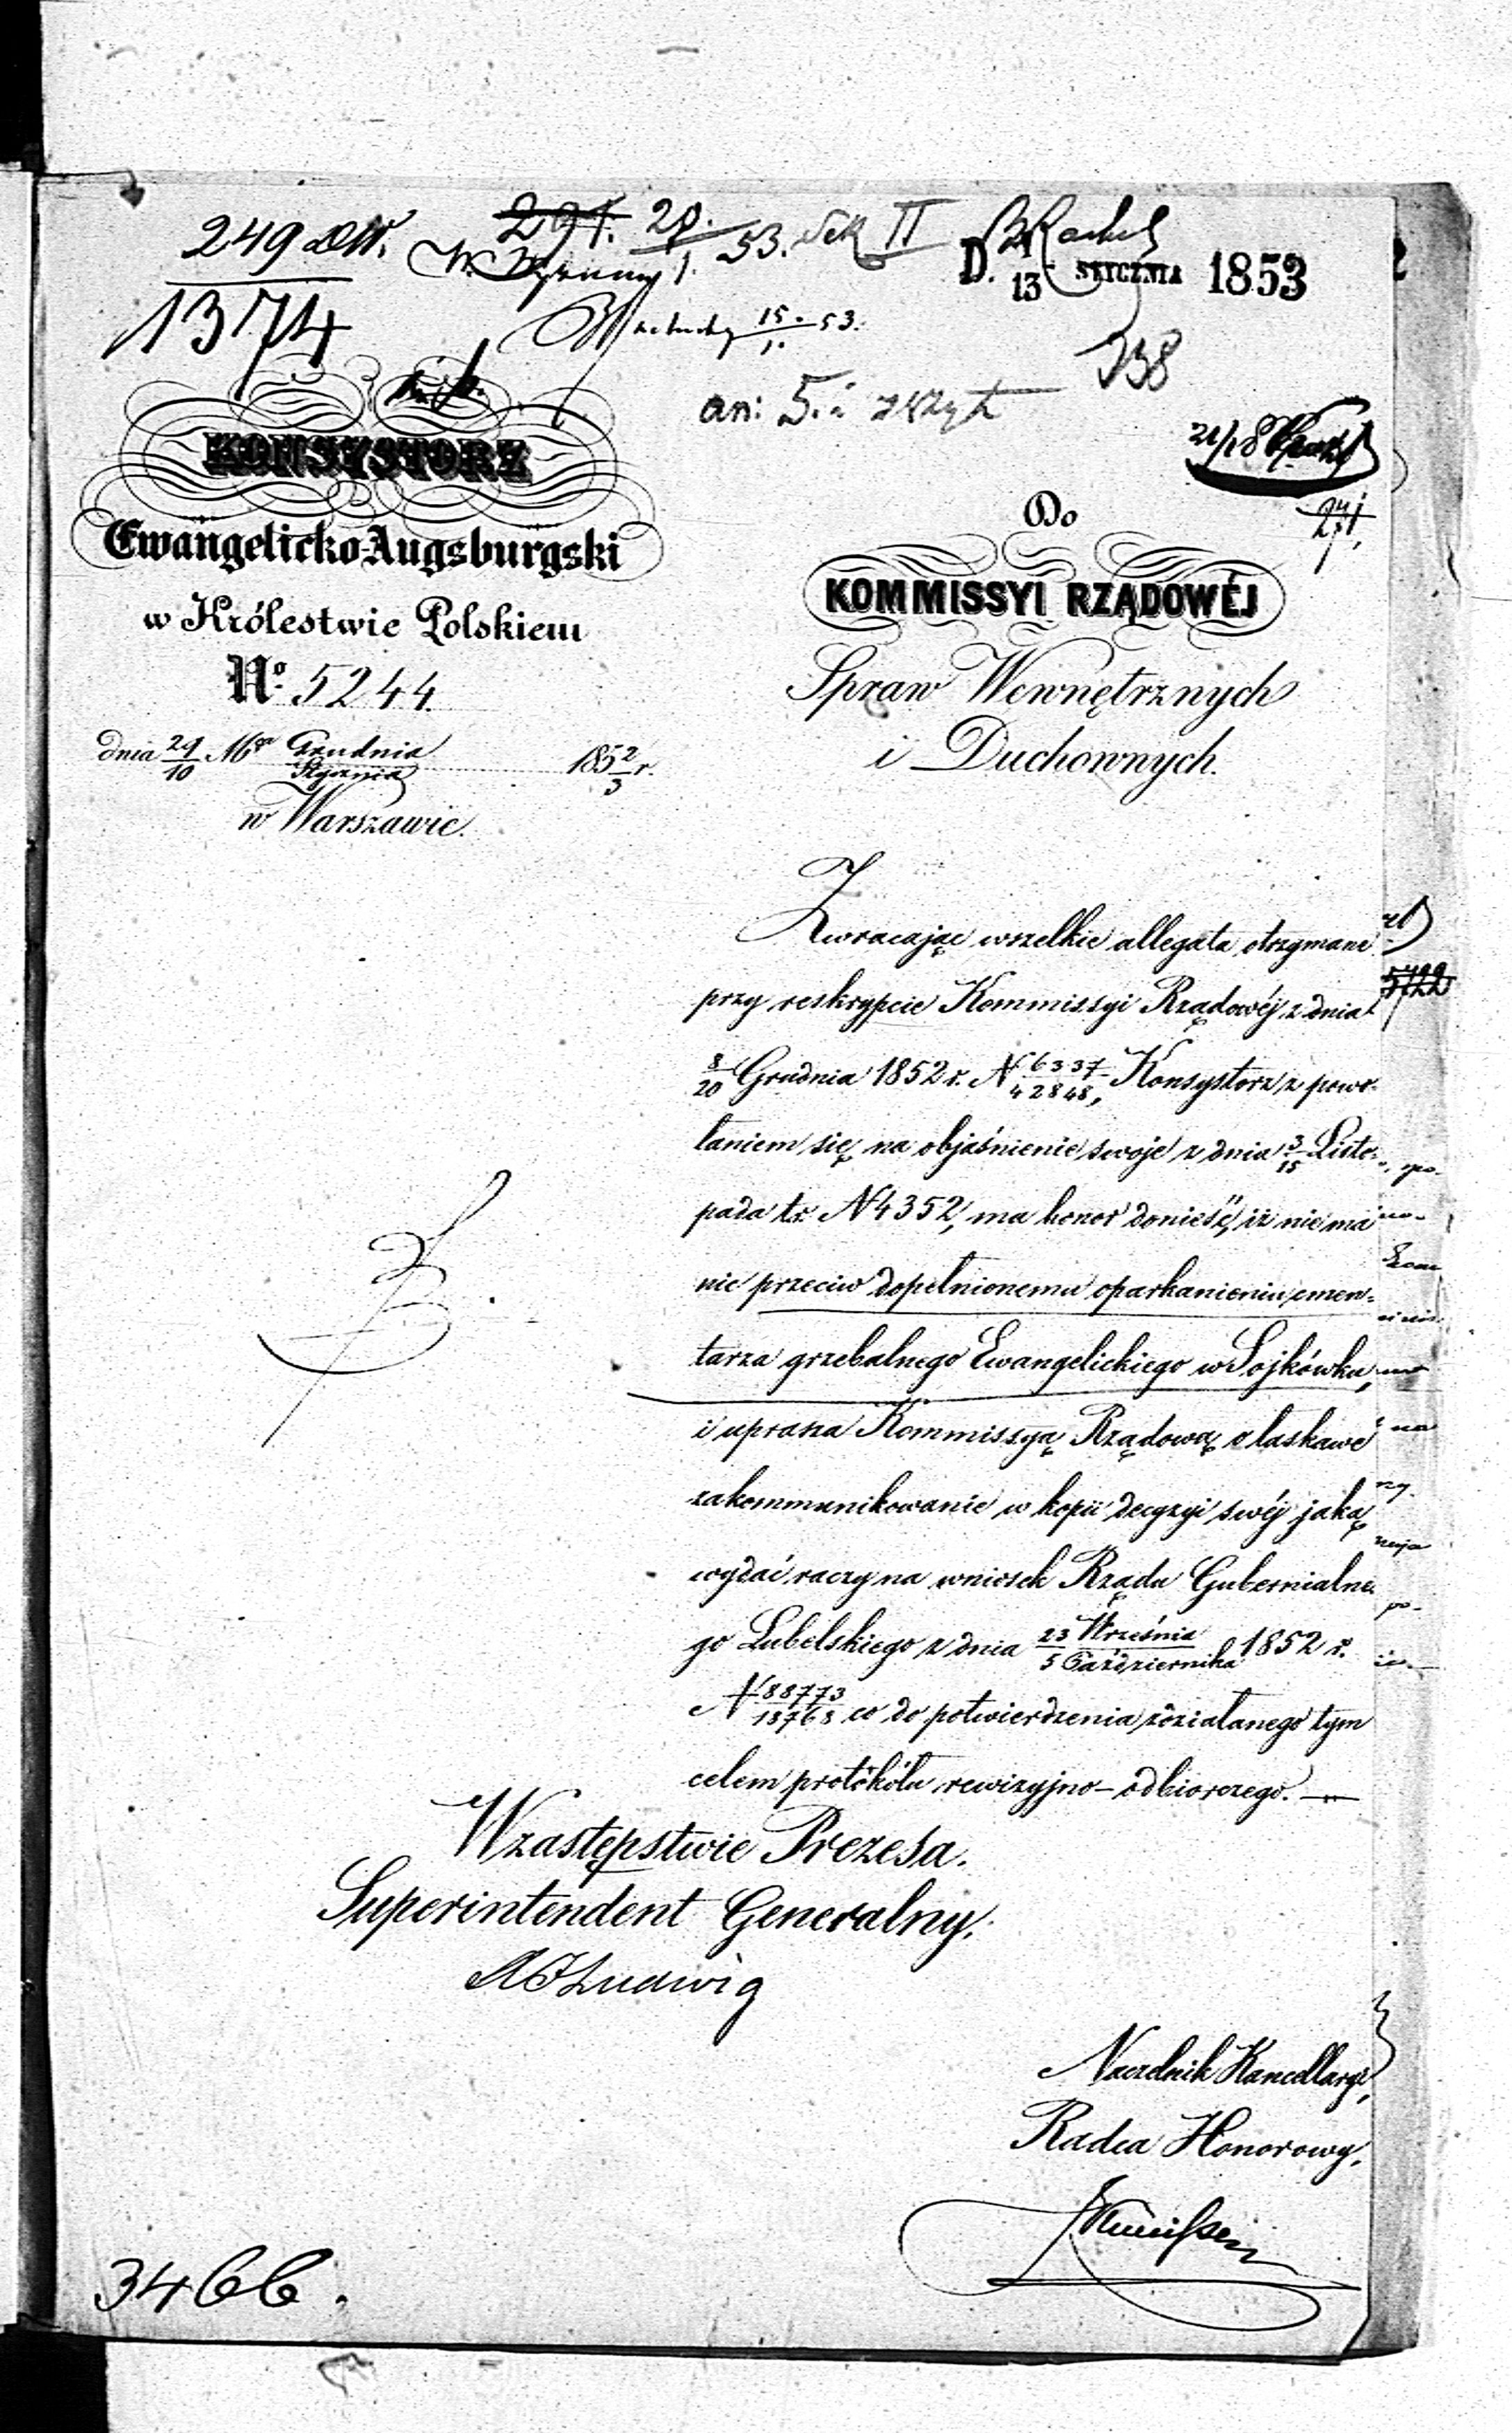 249
1374
29. 53. Sek II
D. 13 STYCZNIA 1853
15./1. 53.
338
an: 5. i zszyt
21/18
KONSYSTORZ
Ewangelicko-Augsburgski
w Królestwie Polskiem
No. 5244.
dnia 29/10 Mca Grudnia/Stycznia 1852/3 r.
w Warszawie.
Do
KOMMISSYI RZĄDOWÉJ
Spraw Wewnętrznych
i Duchownych.
Zwracając wszelkie allegata otrzymane
przy reskrypcie Kommissyi Rządowéj z dnia
8/20 Grudnia 1852 r. N 6337/42848, Konsystorz z powo-
łaniem się na objaśnienie swoje z dnia 3/15 Listo-
pada t.r. N 4352, ma honor donieść, iż nie ma
nic przeciw dopełnionemu oparkanieniu cmen-
tarza grzebalnego Ewangelickiego w Sojkówku,
i uprasza Kommissyą Rządową o łaskawe
zakommunikowanie w kopii decyzyi swéj jaką
wydać raczy na wniosek Rządu Gubernialne-
go Lubelskiego z dnia 23 Września/5 Października 1852 r.
N 88773/18768 co do potwierdzenia zdziałanego tym
celem protókółu rewizyjno-odbiorczego.
W zastępstwie Prezesa.
Superintendent Generalny.
Ludwig
Naczelnik Kancellaryi,
Radca Honorowy,
3466.
5722